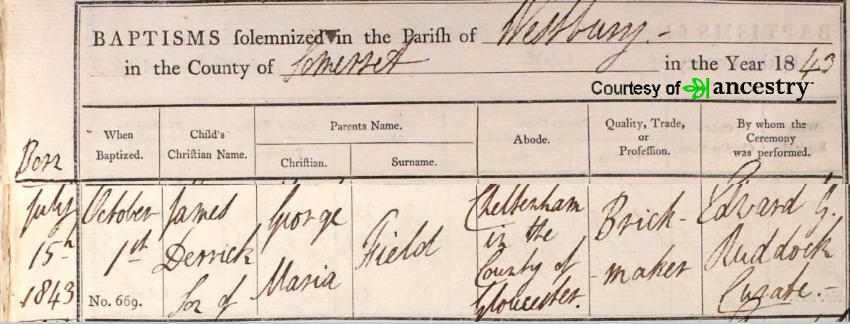 BAPTISMS solemnized in the Parish of Westbury.-
in the County of Somerset in the Year 1843
Courtesy of ancestry
Born
When Baptized.
Child's Christian Name.
Parents Name.
Christian.
Surname.
Abode.
Quality, Trade, or Profession.
By whom the Ceremony was performed.
July
15th
1843
October
1st
No. 669.
James
Derrick
Son of
George
Maria
Field
Cheltenham
in the
County of
Gloucester.
Brick-
-maker
Edward G.
Ruddock
Curate.-